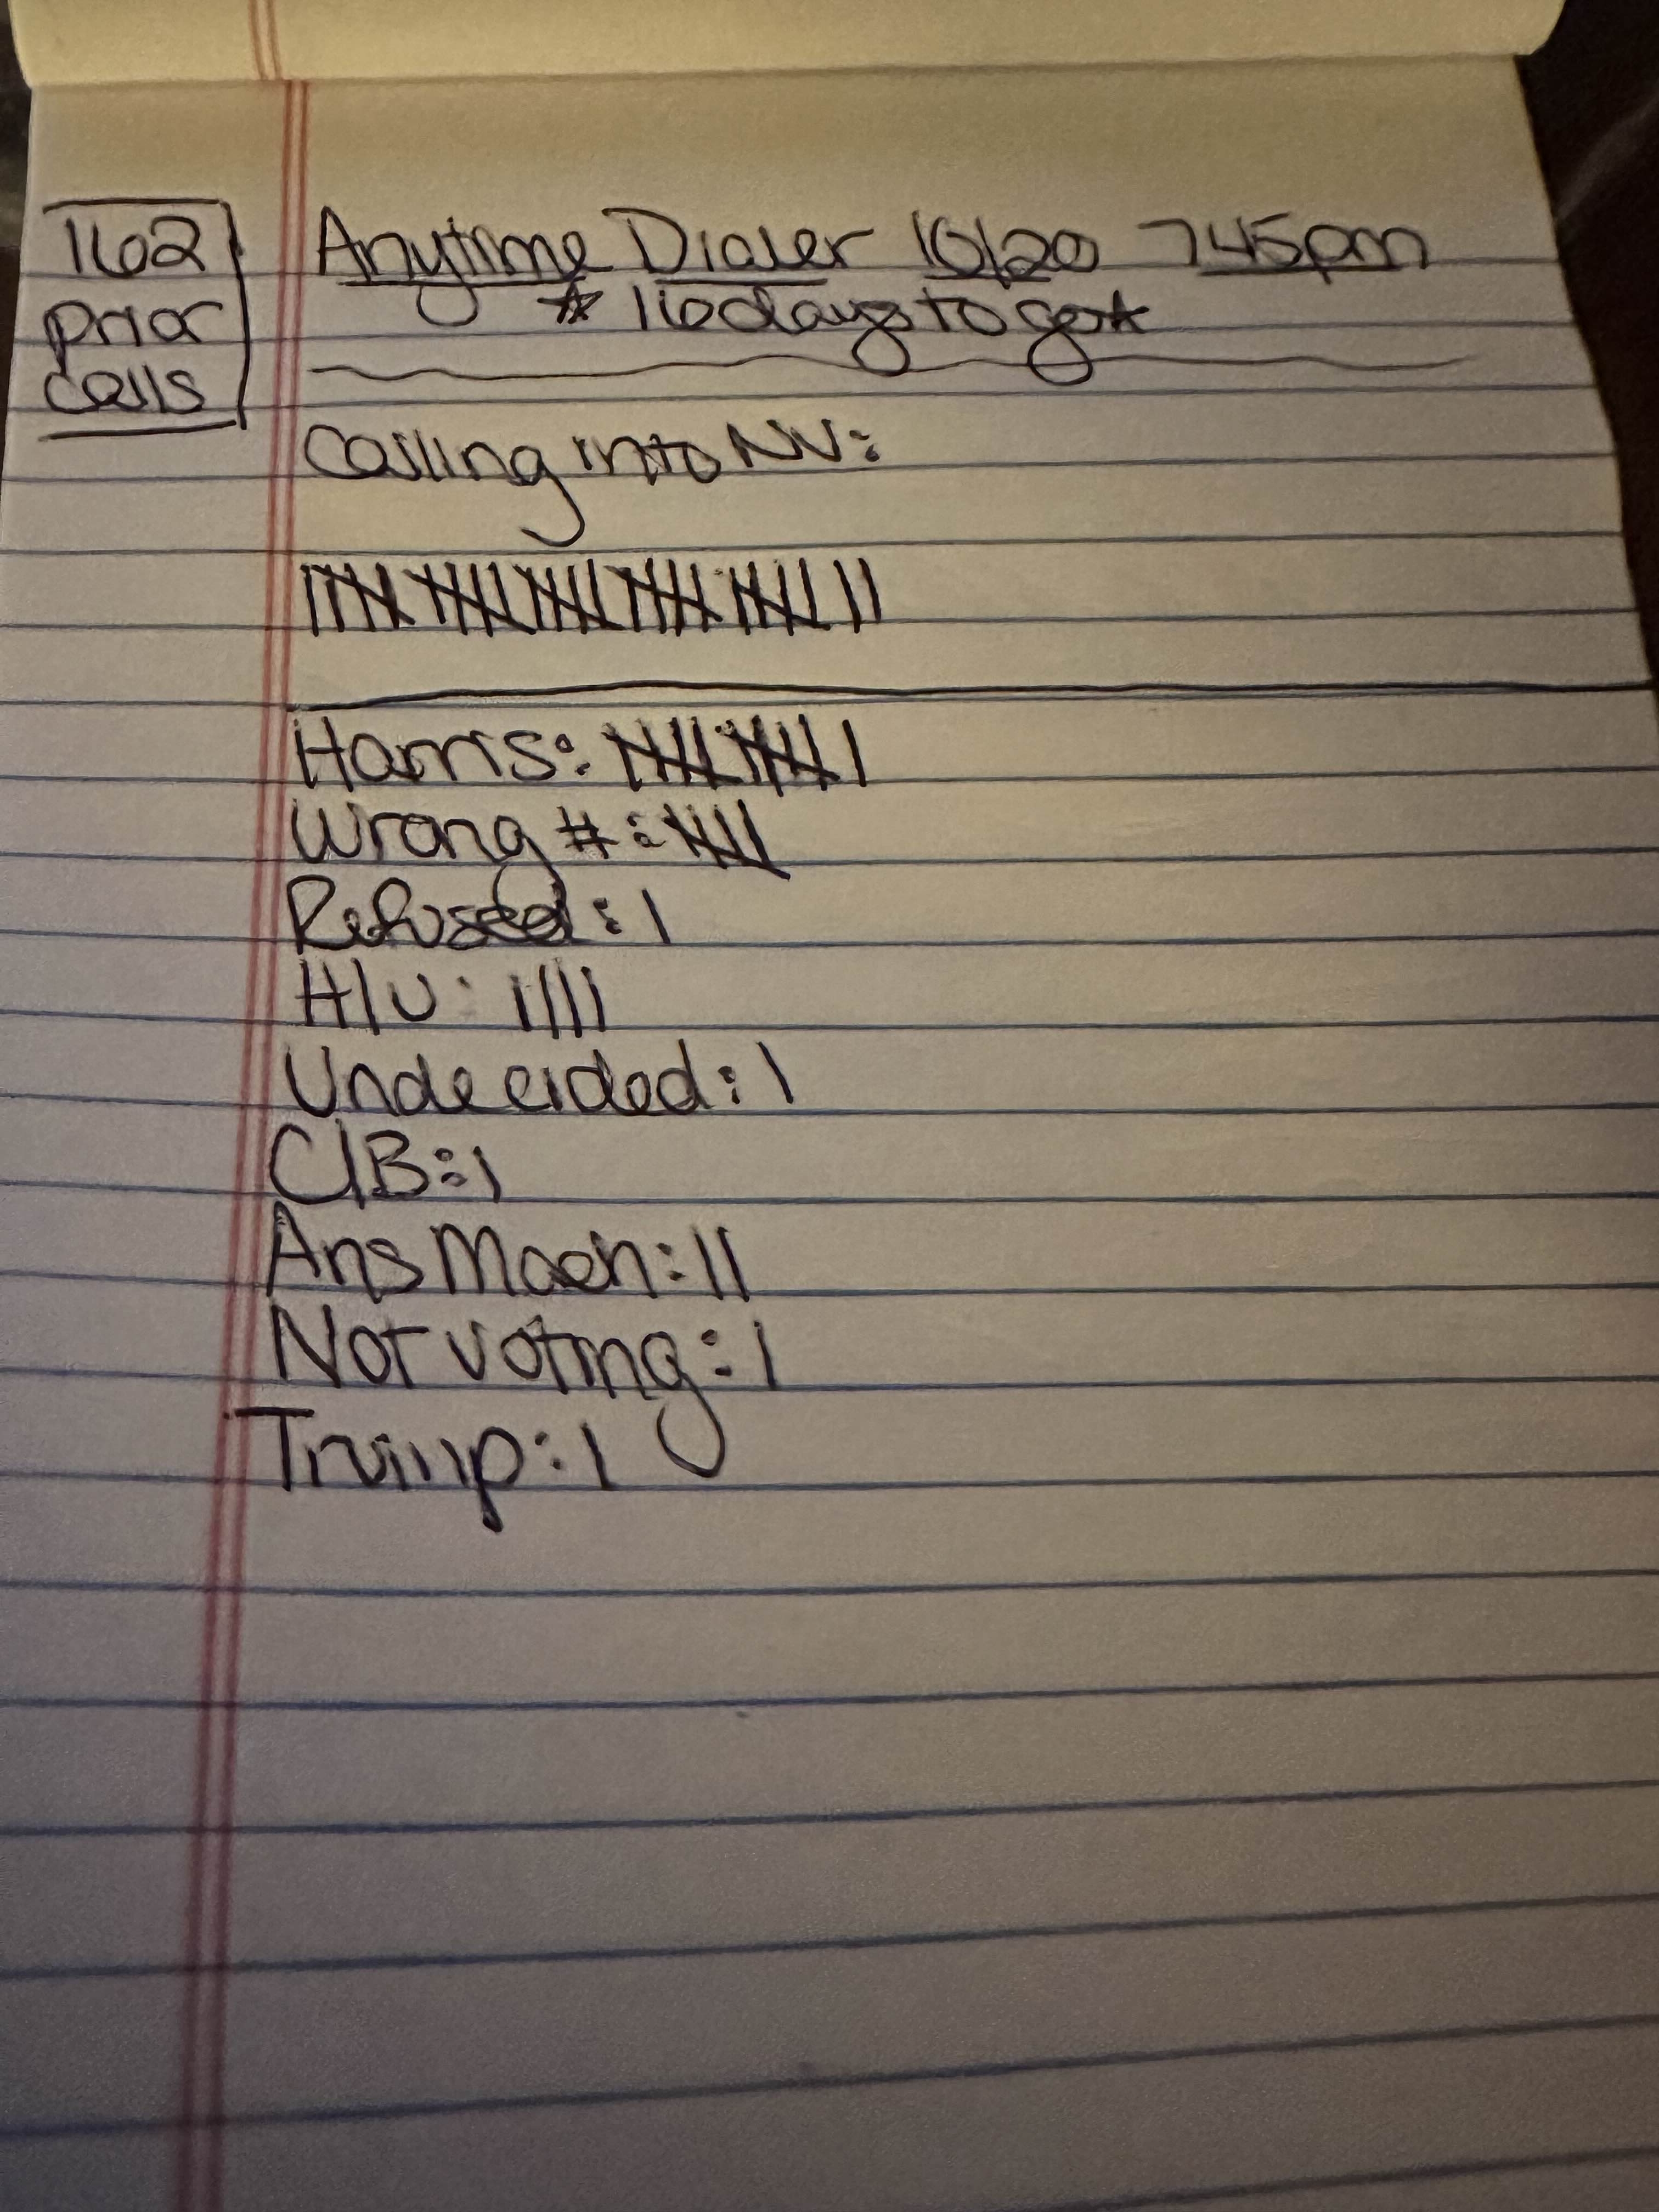 162
prior
calls
Anytime Dialer 10/20 745pm
☆ 16 days to go ☆
Calling into NV:
卌 卌 卌 卌 卌 ||
Harris: 卌 卌 |
Wrong #: 卌
Refused: |
H/U: ||||
Undecided: |
C/B: |
Ans Mach: ||
Not voting: |
Trump: |